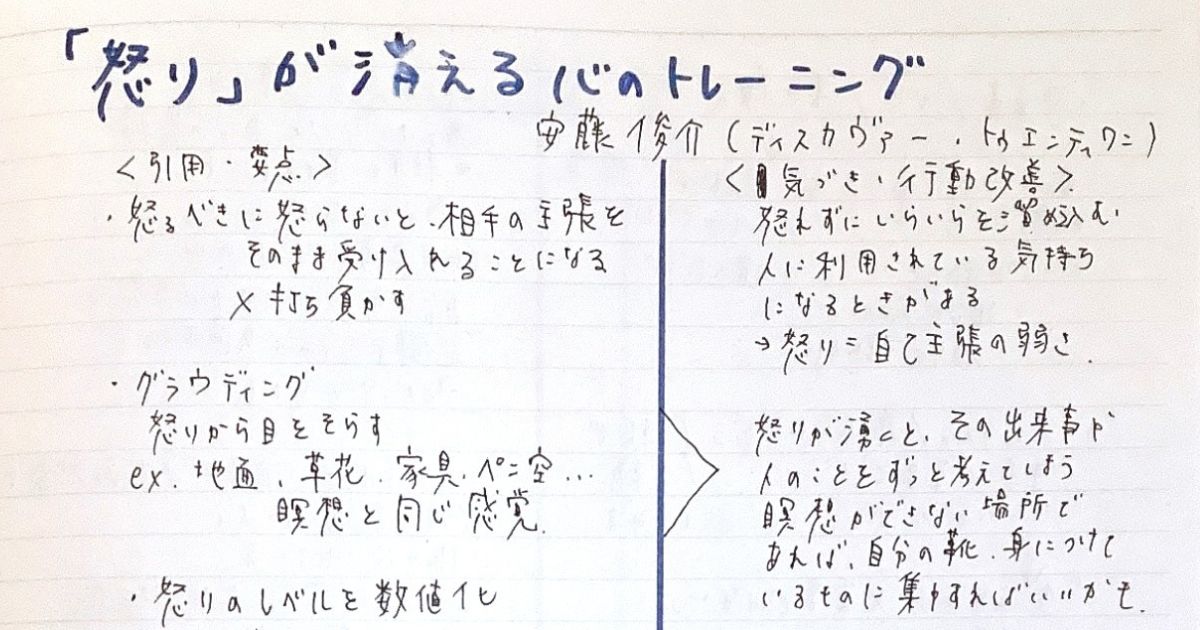 「怒り」が消える心のトレーニング
安藤俊介(ディスカヴァー・トゥエンティワン)
<引用・要点>
・怒るべきに怒らないと、相手の主張を
そのまま受け入れることになる
×打ち負かす
・グラウディング
怒りから目をそらす
ex. 地面、草花、家具、ペン、空…
瞑想と同じ感覚
・怒りのレベルを数値化
<気づき・行動改善>
怒れずにいらいらを溜め込む
人に利用されている気持ち
になるときがある
→怒り=自己主張の弱さ.
怒りが湧くと、その出来事が
人のことをずっと考えてしまう
瞑想ができない場所で
あれば、自分の靴、身につけて
いるものに集中すればいいかも.